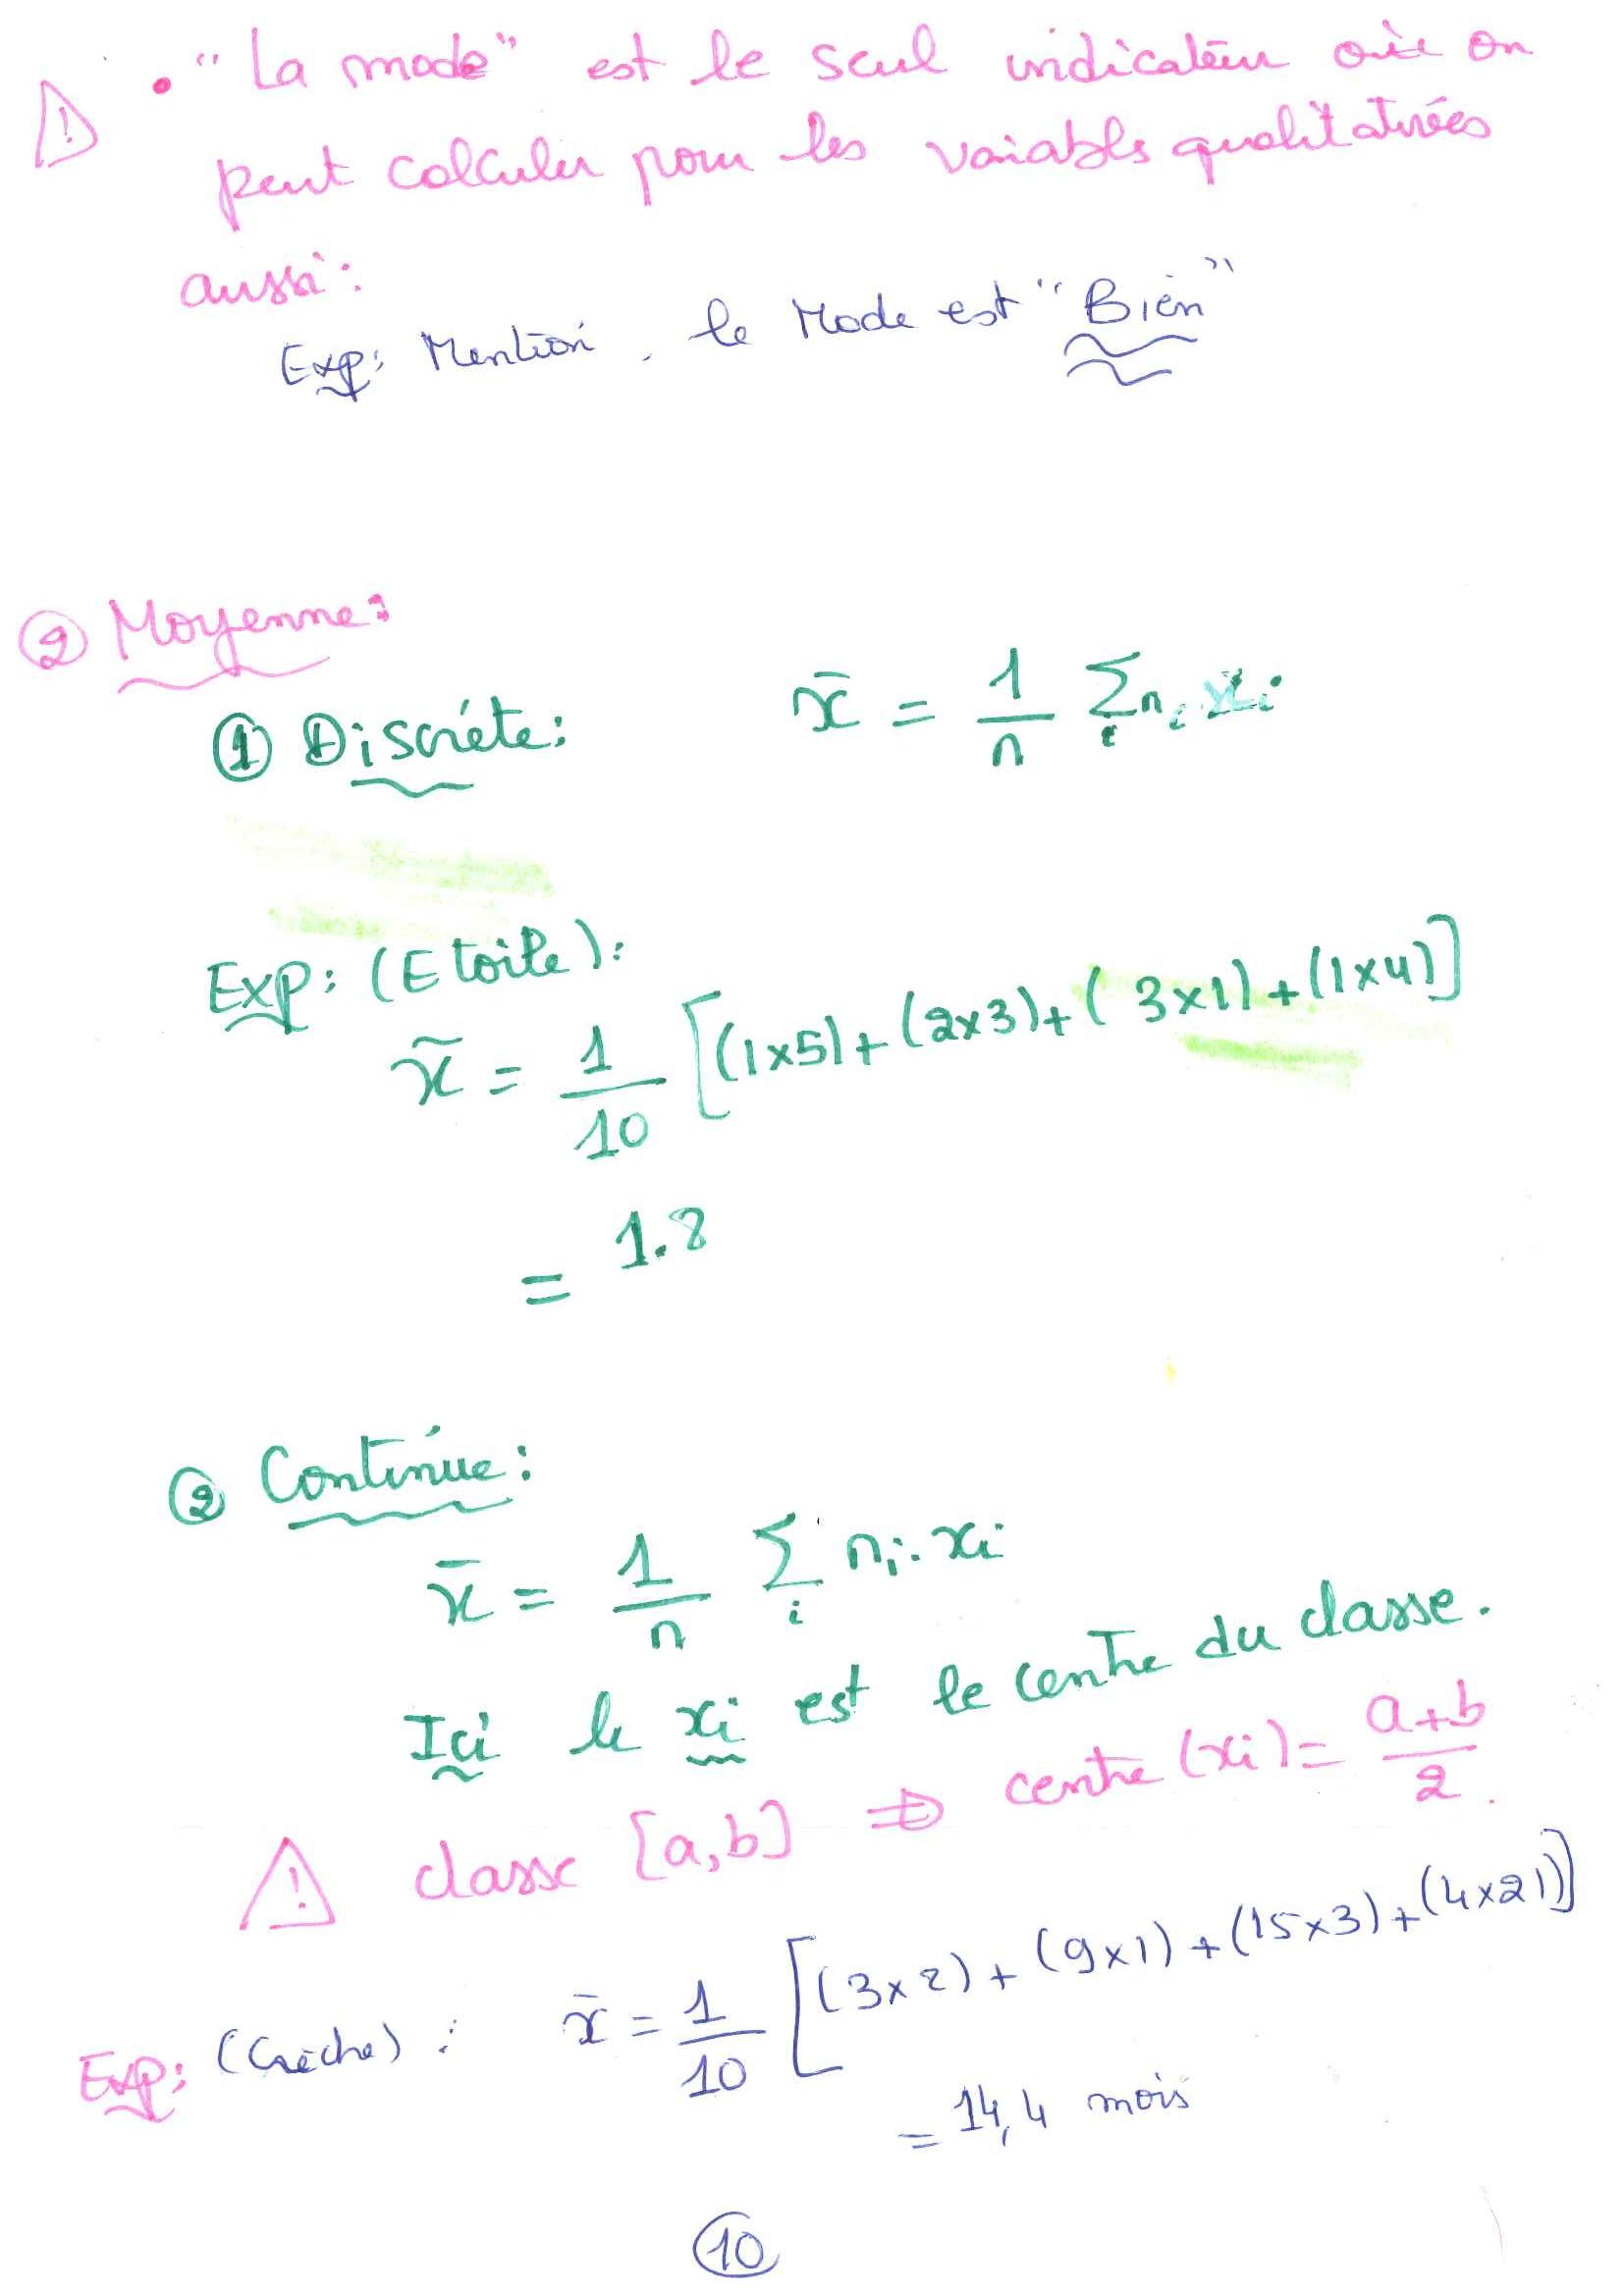 ⚠ • "La mode" est le seul indicateur où on
peut calculer pour les variables qualitativées
aussi :
Exp: Mention . le Mode est "Bien"
② Moyenne:
① Discréte: x̄ = 1/n Σᵢ nᵢ xᵢ
Exp: (Etoile):
x̄ = 1/10 [(1x5)+(2x3)+(3x1)+(1x4)]
= 1.8
② Continue:
x̄ = 1/n Σᵢ nᵢ. xᵢ
Ici le xi est le centre du classe.
⚠ classe [a,b] ⇒ centre (xi) = a+b/2.
Exp: (Crèche) : x̄ = 1/10 [(3x2)+(9x1)+(15x3)+(4x21)]
= 14,4 mois
10